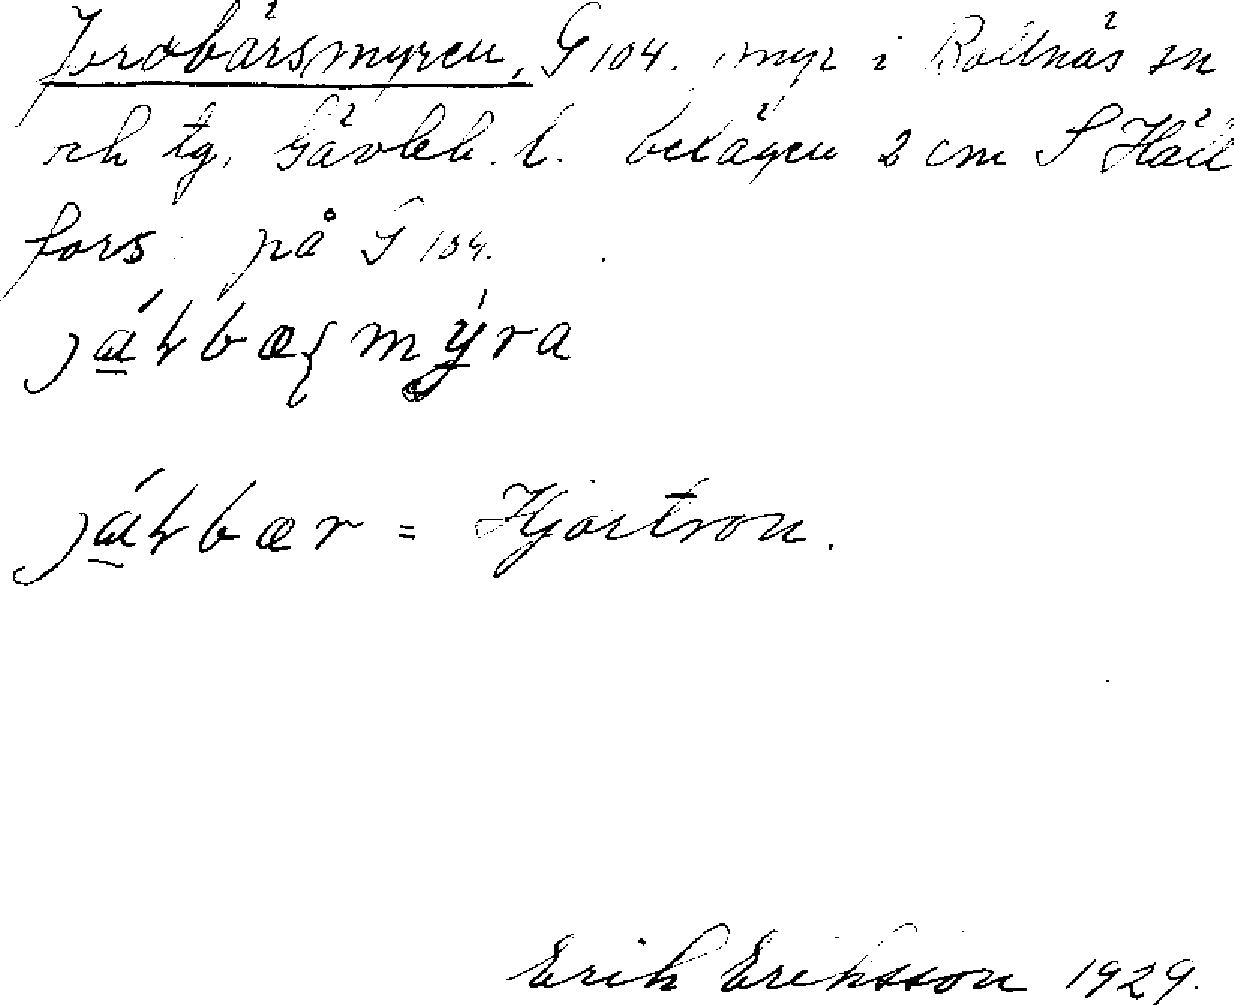 Jordbärsmyren, G 104. myr i Bollnäs sn
och tg, Gävleb. l. belägen 2 cm S Häll
fors på G 104.
Hjortron.
Erik Eriksson 1929.